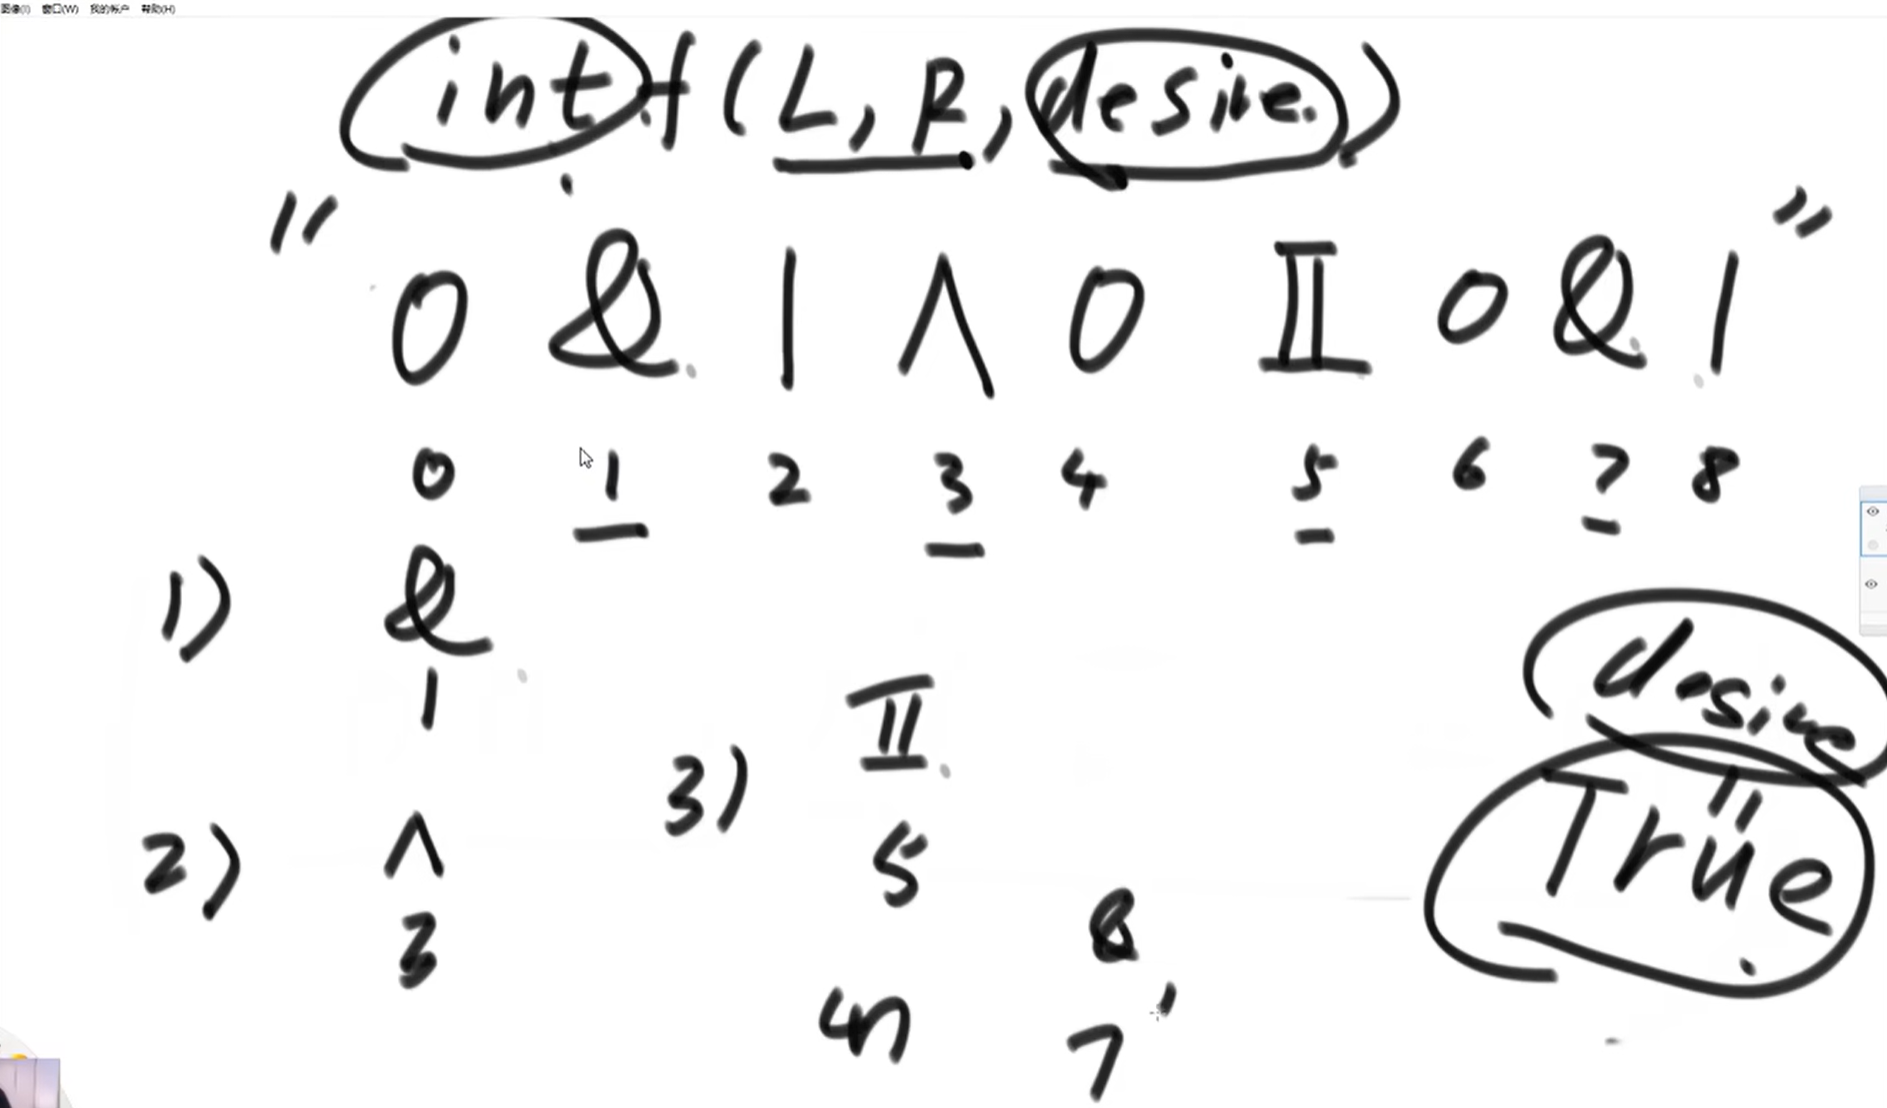 图像(I) 窗口(W) 我的帐户 帮助(H)
int f(L, R, desire)
" 0 & 1 ^ 0 | 0 & 1 "
0 1 2 3 4 5 6 7 8
1) &
1
2) ^
3
3) |
5
4) &
7
desire
=
True